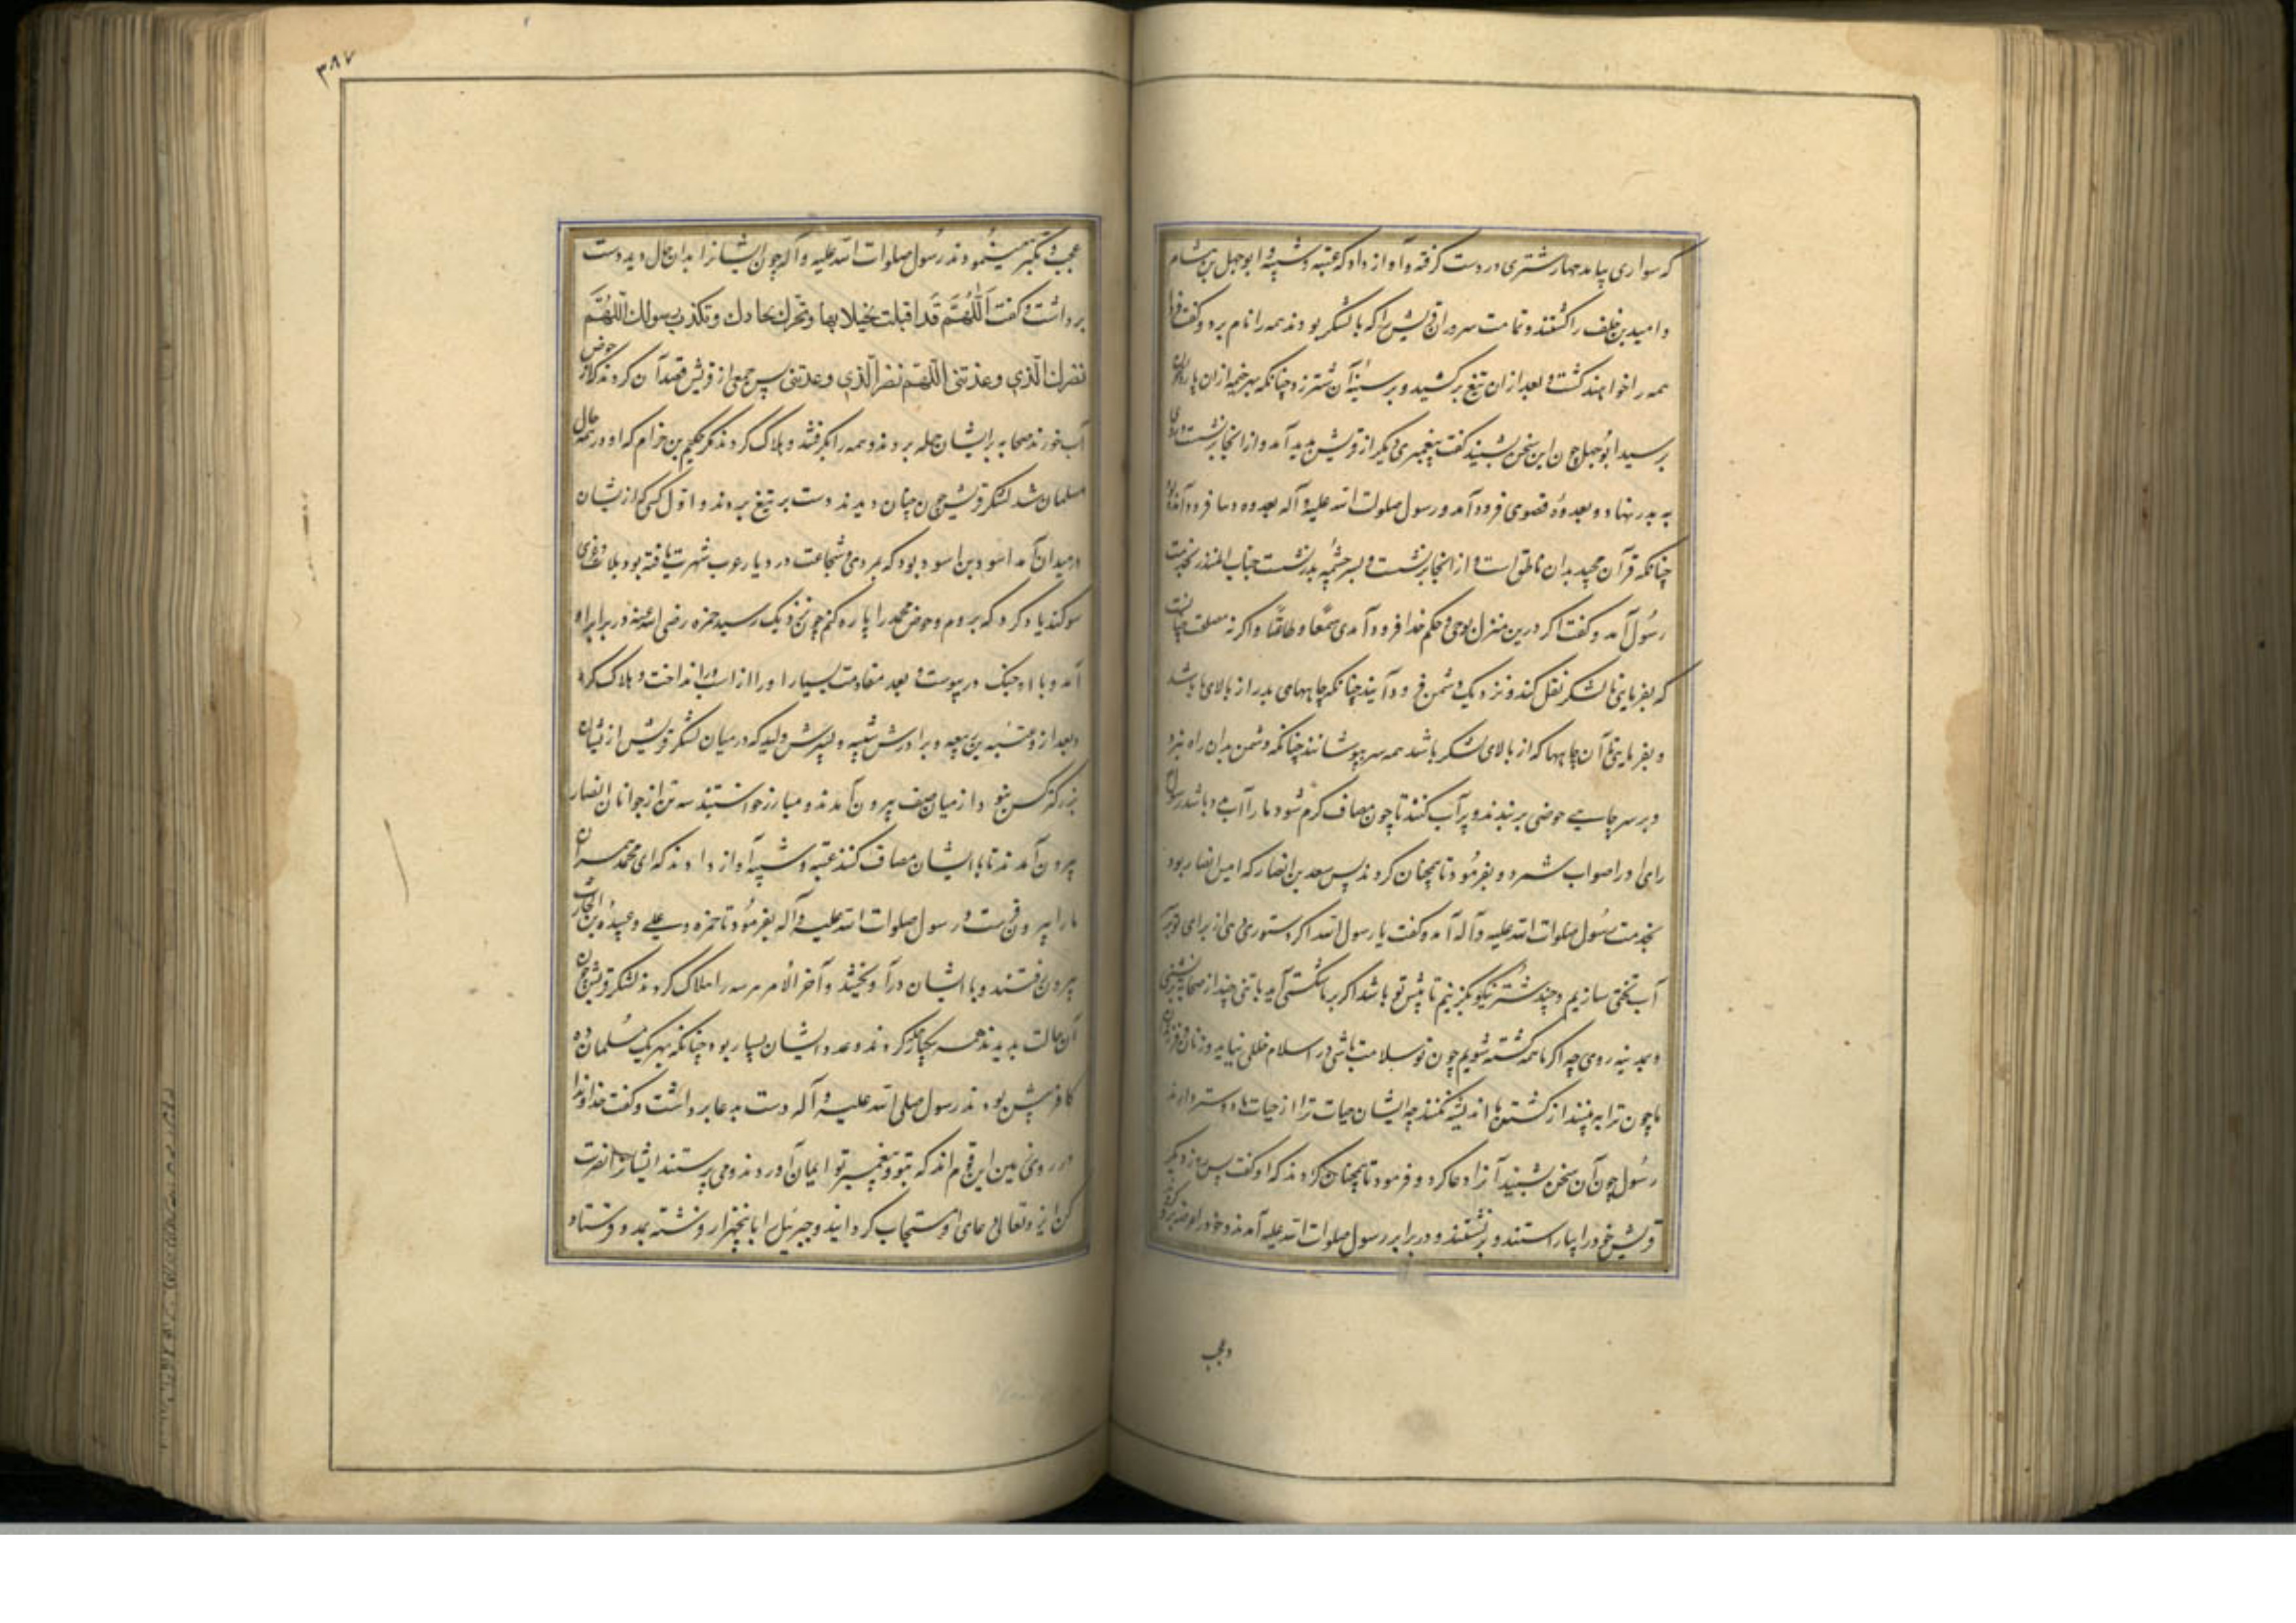 که سواری بیامد مهار شتری در دست گرفته و آواز داد که عتبه و شیبه و ابوجهل بن هشام
و امیة بن خلف را کشتند و تمامت سروران قریش را که با لشکر بودند همه را نام برد و گفت فردا
همه را خواهند کشت و بعد از ان تیغ برکشید و بر سینهٔ آن شتر زد چنانکه بهر خیمه از ان پارهٔ خون
برسید ابوجهل چون این سخن بشنید گفت پیغمبری دیگر از قریش پدید آمد و از انجا برنشست و روی
به بدر نهاد و بعدوهٔ قصوی فرود آمد و رسول صلوات الله علیه و آله بعدوه دنیا فرود آمده بود
چنانکه قرآن مجید بدان ناطق است و از انجا برنشست و بسر چشمه بدر نشست حباب المنذر بخدمت
رسول آمد و گفت اگر درین منزل بوحی و حکم خدا فرود آمدی سمعًا و طاعةً و اگر نه مصلحت چنانست
که بفرمایی تا لشکر نقل کند و نزدیک دشمن فرود آیند چنانکه چاههای بدر از بالای ما باشد
و بفرمایی تا آن چاهها که از بالای لشکر باشد همه سر بپوشانند چنانکه دشمن بدان راه نبرد
و بر سر چاهی حوضی بربندند و پر آب کنند تا چون مصاف گرم شود ما را آب بود باشد رسول
رای او را صواب شمرد و بفرمود تا همچنان کردند پس سعد بن انصار که امیر انصار بود
بخدمت رسول صلوات الله علیه و آله آمد و گفت یا رسول الله اگر دستوری دهی از برای تو بر
آب تختی سازیم و چند شتر نیکو بگزینیم تا پیش تو باشد اگر بر ما شکستی آید با تنی چند از صحابه برنشینی
و بمدینه روی چه اگر ما همه کشته شویم چون تو بسلامت باشی در اسلام خللی نیاید و زنان و فرزندان
ما چون ترا ببینند از کشتن ما اندیشه نکنند چه ایشان حیات ترا از حیات ما دوستر دارند
رسول چون آن سخن بشنید آنرا دعا کرد و فرمود تا همچنان کردند که او گفت پس روز دیگر
قریش خود را بیاراستند و برنشستند و در برابر رسول صلوات الله علیه آمدند و خود را عرضه کردند
و عجب
۳۸۷
عجب و تکبر مینمودند رسول صلوات الله علیه و آله چون ایشانرا بدان حال دید دست
برداشت و گفت اَللّٰهُمَّ قَد اقبلت بخیلایها و تحرك بحادك و تكذب رسولك اللّهُمَّ
نصرك الّذي وعدتنی اللّهمّ نصر الّذي وعدتنی پس جمعی از قریش قصد آن کردند که از حوض
آب خورند صحابه بر ایشان حمله بردند و همه را بگرفتند و هلاک کردند مگر حکیم بن حزام که او در همه حال
مسلمان شد لشکر قریش چون چنان دیدند دست بر تیغ بردند و اوّل کسی که از ایشان
در میدان آمد اسود بن اسود بود که بمردی و شجاعت در دیار عرب شهرت یافته بود بلات و عزی
سوکند یاد کرد که بروم و حوض محمد را پاره کنم چون نزدیک رسید حمزه رضی الله عنه در برابر او
آمد و با او جنگ در پیوست و بعد مقاومت بسیار او را از اسب در انداخت و هلاک کرد
و بعد ازو عتبه بن ربیعه و برادرش شیبه و پسرش ولید که در میان لشکر قریش از ایشان
بزرکتر کس نبود از میان صف بیرون آمدند و مبارز خواستند سه تن از جوانان انصار
بیرون آمدند تا با ایشان مصاف کنند عتبه و شیبه آواز دادند که ای محمد همسران
ما را بیرون فرست رسول صلوات الله علیه و آله بفرمود تا حمزه و علی و عبیدة بن الحارث
بیرون رفتند و با ایشان درآویختند و آخر الأمر هر سه را هلاک کردند لشکر قریش چون
آن حالت بدیدند همه بیکبار حمله کردند و عدد ایشان بسیار بود چنانکه بهر یک مسلمان ده
کافر بیش بودند رسول صلی الله علیه و آله دست بدعا برداشت و گفت خداوندا
در روی زمین این قوم اند که بتو و پیغمبر تو ایمان آوردند و می پرستند ایشانرا نصرت
کن ایزد تعالی دعای او مستجاب کردانید و جبرئیل را با پنجهزار فرشته بمدد فرستاد